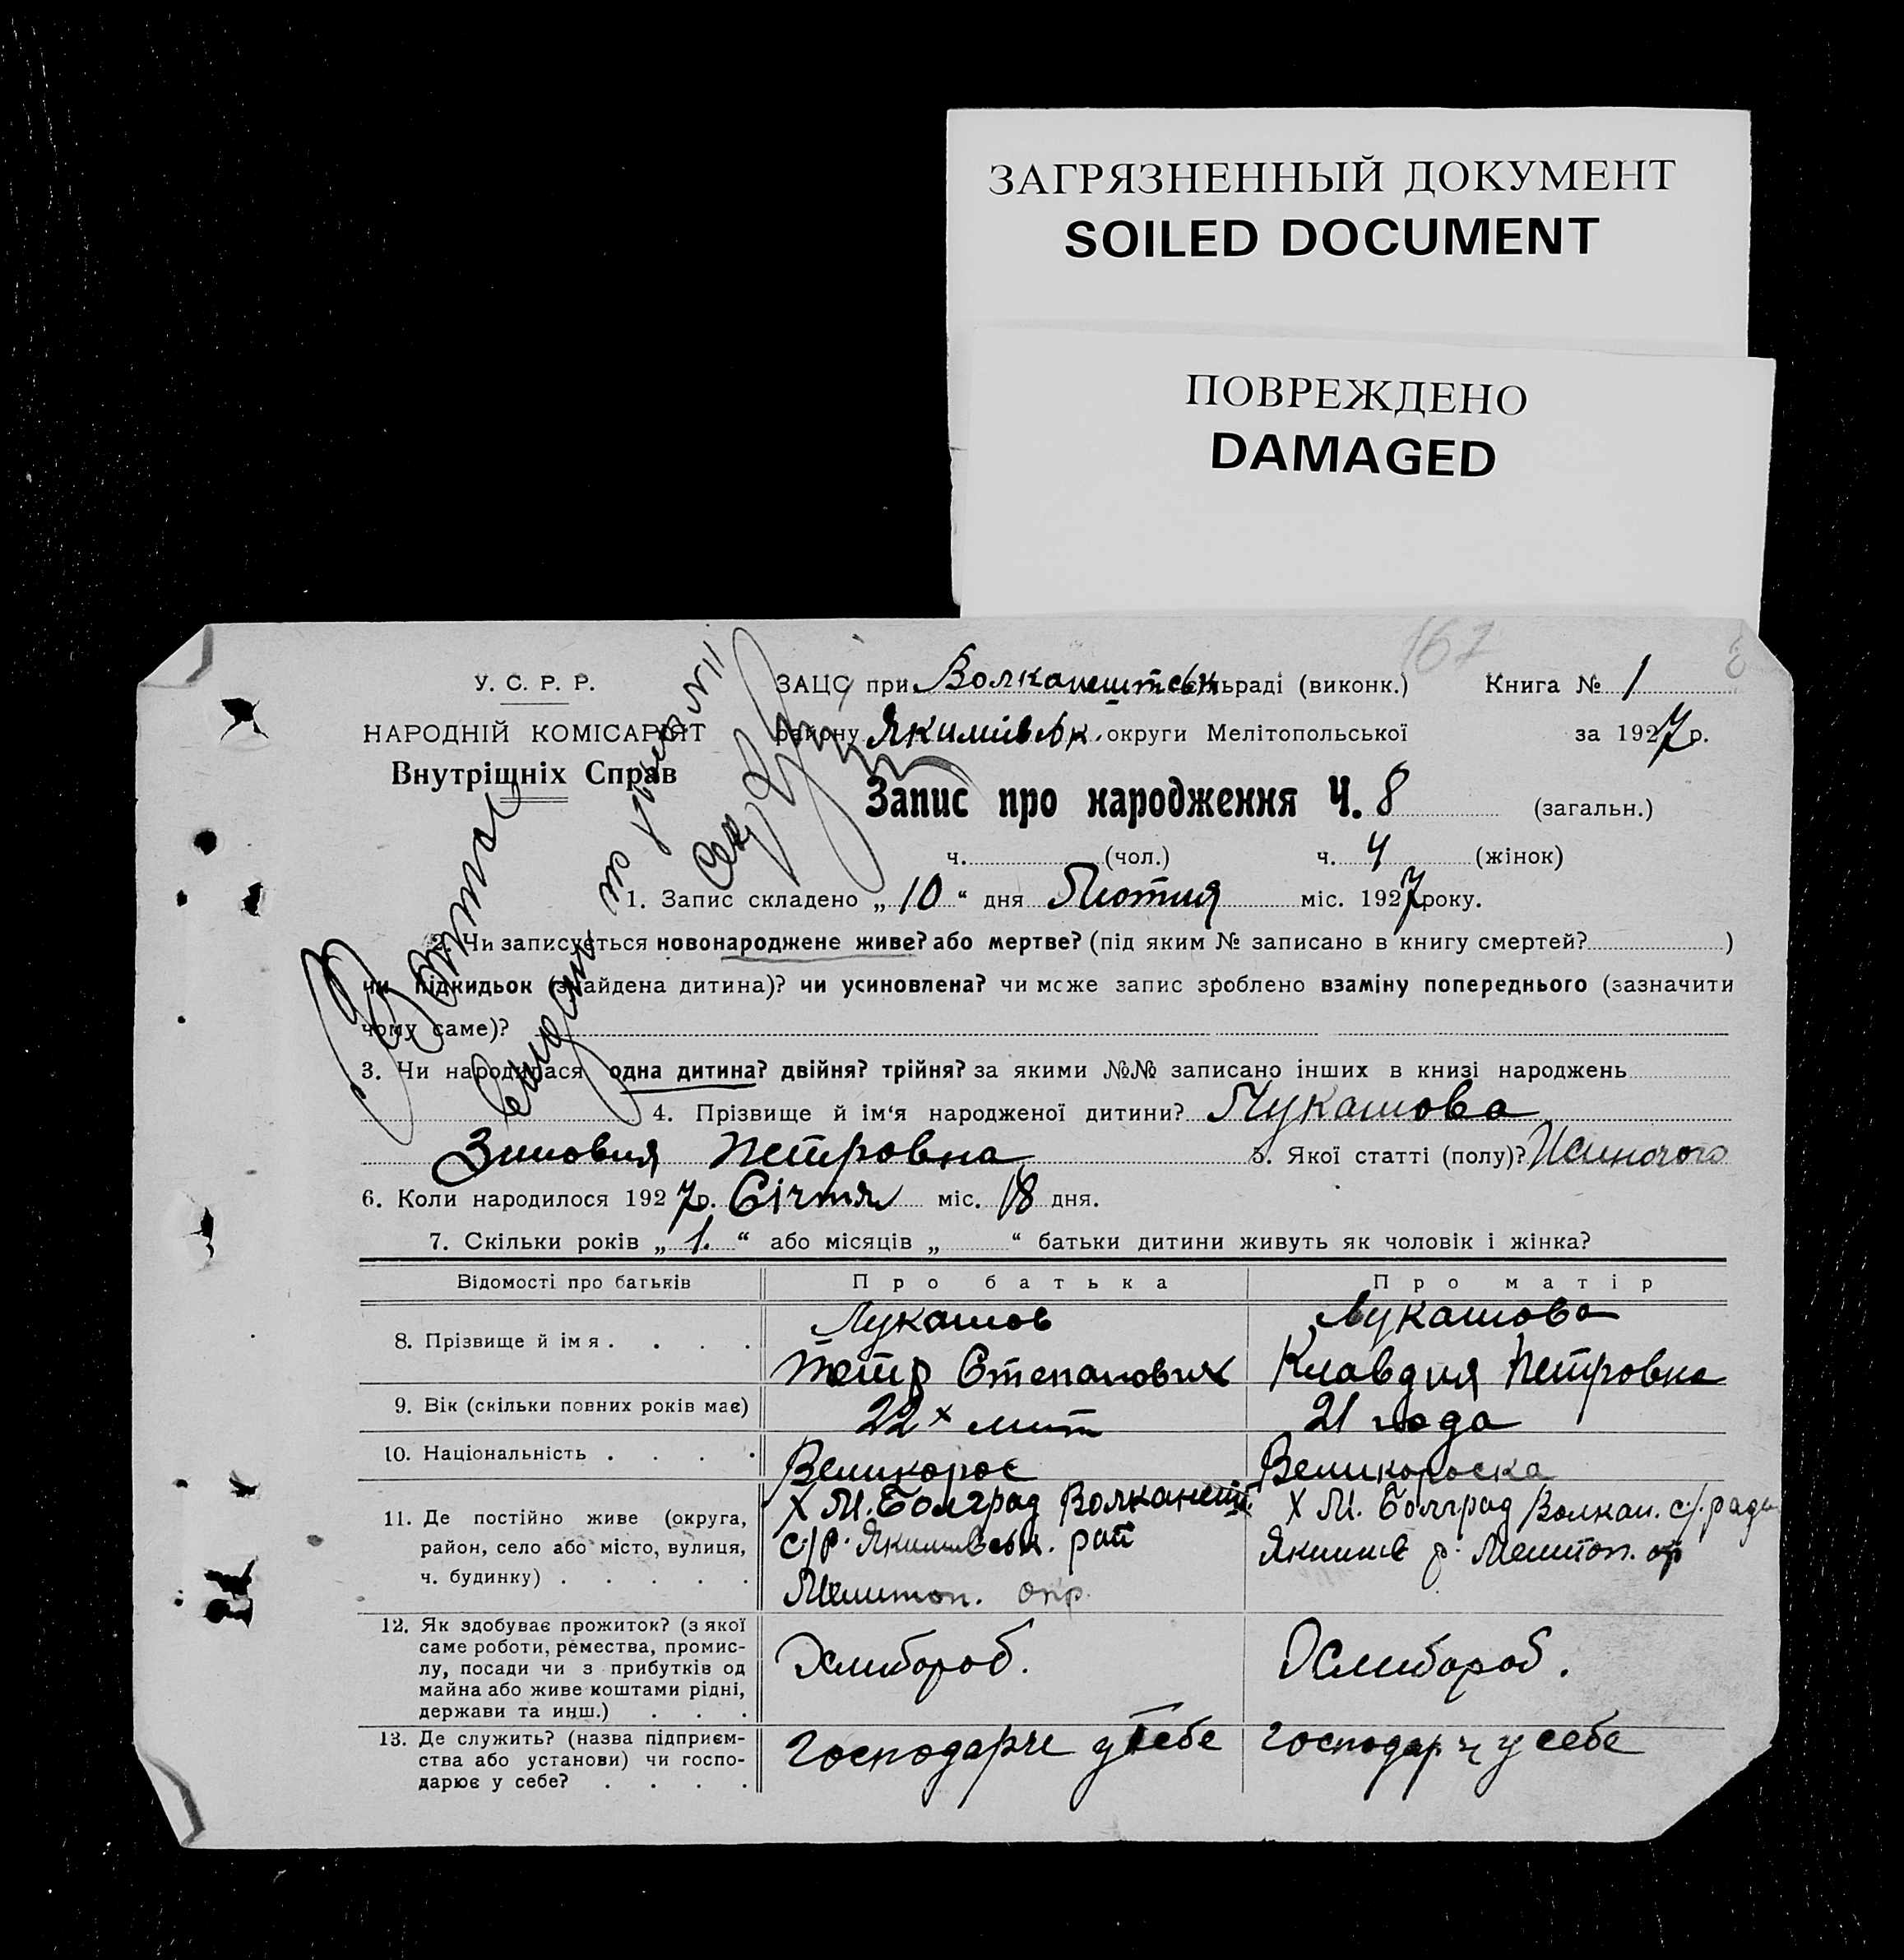 ЗАГРЯЗНЕННЫЙ ДОКУМЕНТ
SOILED DOCUMENT
ПОВРЕЖДЕНО
DAMAGED
167
У. С. Р. Р.
НАРОДНІЙ КОМІСАРІЯТ
Внутрішніх Справ
ЗАЦС при Волканештськ льраді (виконк.) Книга № 1
району Якимівськ. округи Мелітопольської за 1927 р.
Запис про народження Ч. 8 (загальн.)
ч. (чол.) ч. 4 (жінок)
1. Запис складено „ 10 “ дня Лютия міс. 1927 року.
2. Чи записується новонароджене живе? або мертве? (під яким № записано в книгу смертей? )
чи підкидьок (знайдена дитина)? чи усиновлена? чи може запис зроблено взаміну попереднього (зазначити
чому саме)?
3. Чи народилася одна дитина? двійня? трійня? за якими №№ записано інших в книзі народжень
4. Прізвище й ім‘я народженої дитини? Лукашова
Зиновия Петровна 5. Якої статті (полу)?
6. Коли народилося 1927 р. Січня міс. 18 дня.
7. Скільки років „ 1. “ або місяців „ “ батьки дитини живуть як чоловік і жінка?
Відомості про батьків Про батька Про матір
8. Прізвище й імя . . . . Лукашов Петр Степанович Лукашова Клавдия Петровна
9. Вік (скільки повних років має) 22х лит 21 года
10. Національність . . . . Великорос Великороска
11. Де постійно живе (округа, Х М. Болград Волканешт. Х М. Болград Волкан. с/. ради
район, село або місто, вулиця, с/р. Якимівськ. рай Якимів р. Мелитоп. окр
ч. будинку) . . . . . Мелитоп. окр.
12. Як здобуває прожиток? (з якої
саме роботи, ремества, промис-
лу, посади чи з прибутків од Хлибороб. Хлибороб.
майна або живе коштами рідні,
держави та инш.) . . .
13. Де служить? (назва підприєм- Господарче у себе господарч у себе
ства або установи) чи госпо-
дарює у себе? . . . .